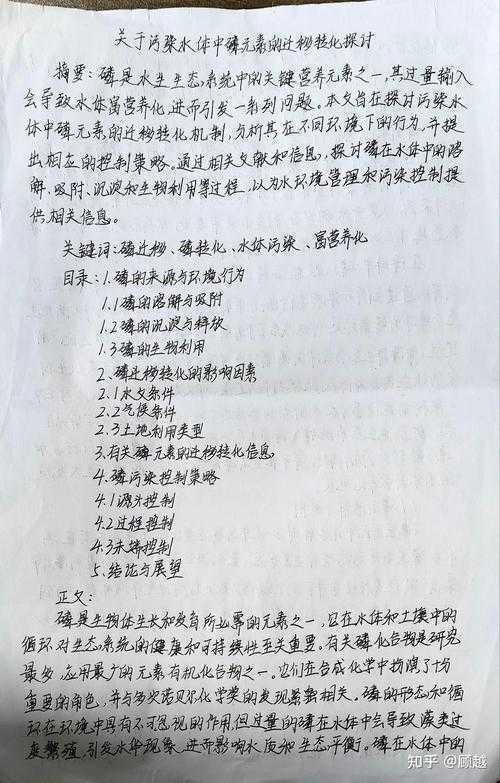 关于污染水体中磷元素的迁移转化探讨
摘要:磷是水生生态系统中的关键营养元素之一,其过量输入
会导致水体富营养化,进而引发一系列问题。本文旨在探讨污染水
体中磷元素的迁移转化机制,分析其在不同环境下的行为,并提
出相应的控制策略。通过相关文献和信息,探讨磷在水体中的溶
解、吸附、沉淀和生物利用等过程,以为水环境管理和污染控制提
供相关信息。
关键词:磷迁移、磷转化、水体污染、富营养化
目录:1.磷的来源与环境行为
1.1磷的溶解与吸附
1.2磷的沉淀与释放
1.3磷的生物利用
2.磷迁移转化的影响因素
2.1水文条件
2.2气候条件
2.3土地利用类型
3.有关磷元素的迁移转化信息
4.磷污染控制策略
4.1源头控制
4.2过程控制
4.3末端控制
5.结论与展望
正文:
磷是生物体生长和发育所必需的元素之一,它在水体和土壤中的
循环对生态系统的健康和可持续性至关重要。有关磷化合物是研究
最多,应用最广的元素有机化合物之一。它们在合成化学中扮演了十分
重要的角色,并与多次诺贝尔化学奖的发现紧密相关。磷的形态和循
环在环境中具有不可忽视的作用,但过量的磷在水体中会导致藻类过
度繁殖,引发水华现象,进而影响水质和生态平衡。磷在水体中的
知乎 @顾越